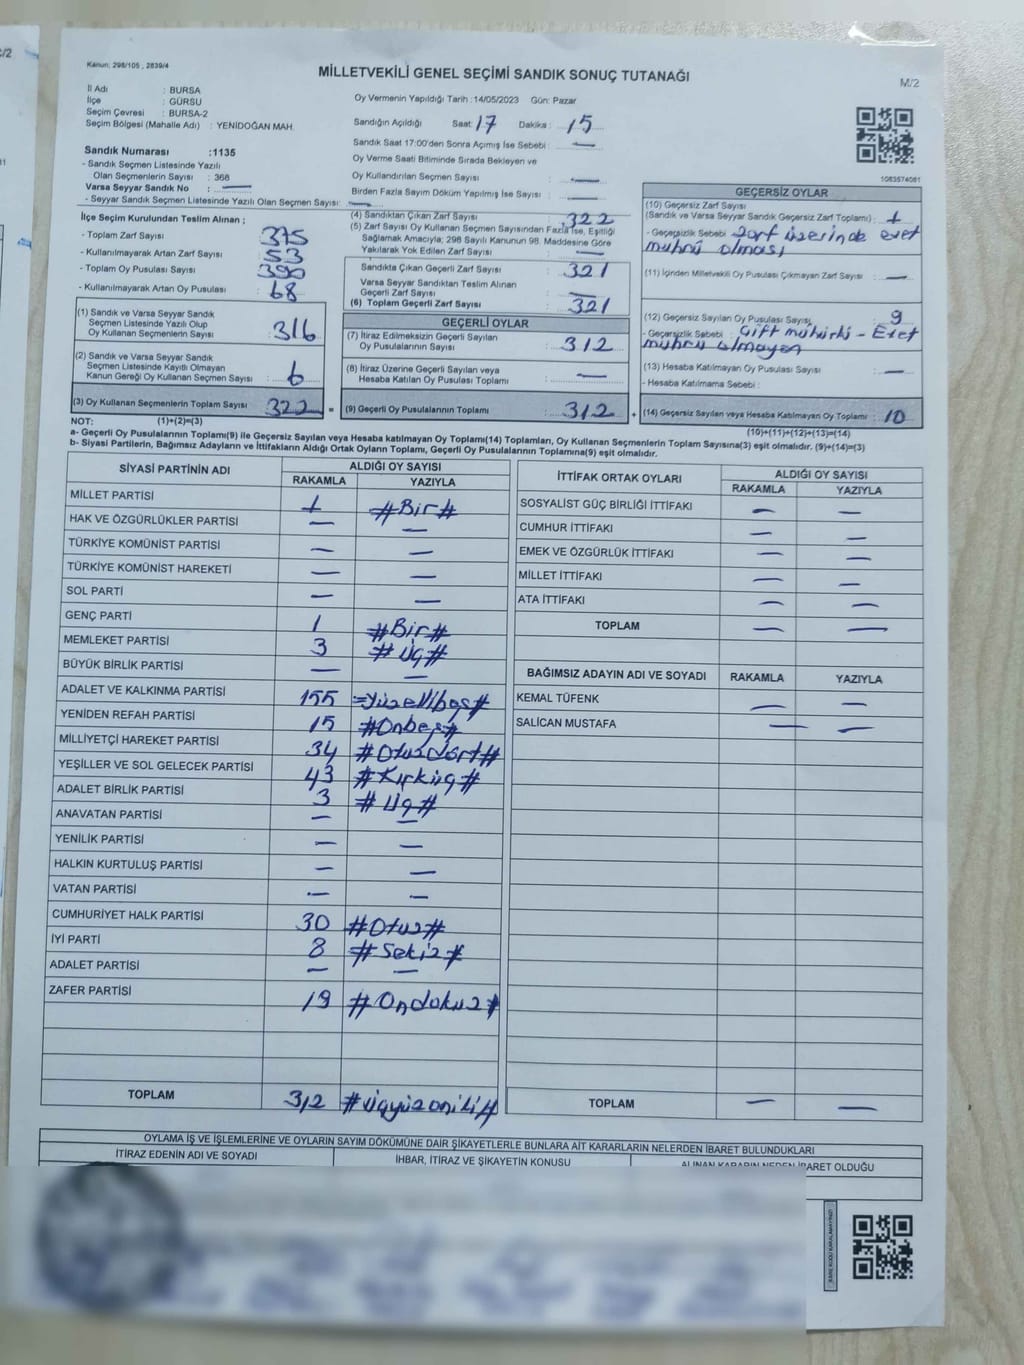 Kanun: 298/105 , 2839/4
MİLLETVEKİLİ GENEL SEÇİMİ SANDIK SONUÇ TUTANAĞI
M/2
İl Adı : BURSA
İlçe : GÜRSU
Seçim Çevresi : BURSA-2
Seçim Bölgesi (Mahalle Adı) : YENİDOĞAN MAH.
Sandık Numarası :1135
- Sandık Seçmen Listesinde Yazılı
Olan Seçmenlerin Sayısı : 368
Varsa Seyyar Sandık No : —
- Seyyar Sandık Seçmen Listesinde Yazılı Olan Seçmen Sayısı: —
Oy Vermenin Yapıldığı Tarih :14/05/2023 Gün: Pazar
Sandığın Açıldığı Saat: 17 Dakika : 15
Sandık Saat 17:00'den Sonra Açımış İse Sebebi : —
Oy Verme Saati Bitiminde Sırada Bekleyen ve
Oy Kullandırılan Seçmen Sayısı : —
Birden Fazla Sayım Döküm Yapılmış İse Sayısı : —
1083574081
İlçe Seçim Kurulundan Teslim Alınan ;
- Toplam Zarf Sayısı : 375
- Kullanılmayarak Artan Zarf Sayısı : 53
- Toplam Oy Pusulası Sayısı : 390
- Kullanılmayarak Artan Oy Pusulası : 68
(1) Sandık ve Varsa Seyyar Sandık
Seçmen Listesinde Yazılı Olup
Oy Kullanan Seçmenlerin Sayısı : 316
(2) Sandık ve Varsa Seyyar Sandık
Seçmen Listesinde Kayıtlı Olmayan
Kanun Gereği Oy Kullanan Seçmen Sayısı : 6
(3) Oy Kullanan Seçmenlerin Toplam Sayısı 322 =
(4) Sandıktan Çıkan Zarf Sayısı : 322
(5) Zarf Sayısı Oy Kullanan Seçmen Sayısından Fazla İse, Eşitliği
Sağlamak Amacıyla; 298 Sayılı Kanunun 98. Maddesine Göre
Yakılarak Yok Edilen Zarf Sayısı : —
Sandıkta Çıkan Geçerli Zarf Sayısı : 321
Varsa Seyyar Sandıktan Teslim Alınan
Geçerli Zarf Sayısı : —
(6) Toplam Geçerli Zarf Sayısı : 321
GEÇERLİ OYLAR
(7) İtiraz Edilmeksizin Geçerli Sayılan
Oy Pusulalarının Sayısı : 312
(8) İtiraz Üzerine Geçerli Sayılan veya
Hesaba Katılan Oy Pusulası Toplamı : —
(9) Geçerli Oy Pusulalarının Toplamı : 312 +
GEÇERSİZ OYLAR
(10) Geçersiz Zarf Sayısı
(Sandık ve Varsa Seyyar Sandık Geçersiz Zarf Toplamı) : 1
- Geçersizlik Sebebi : Zarf üzerinde evet
mührü olması
(11) İçinden Milletvekili Oy Pusulası Çıkmayan Zarf Sayısı : —
(12) Geçersiz Sayılan Oy Pusulası Sayısı : 9
- Geçersizlik Sebebi : Çift mühürlü - Evet
mührü olmayan
(13) Hesaba Katılmayan Oy Pusulası Sayısı : —
- Hesaba Katılmama Sebebi :
(14) Geçersiz Sayılan veya Hesaba Katılmayan Oy Toplamı : 10
NOT: (1)+(2)=(3)
(10)+(11)+(12)+(13)=(14)
a- Geçerli Oy Pusulalarının Toplamı(9) ile Geçersiz Sayılan veya Hesaba katılmayan Oy Toplamı(14) Toplamları, Oy Kullanan Seçmenlerin Toplam Sayısına(3) eşit olmalıdır. (9)+(14)=(3)
b- Siyasi Partilerin, Bağımsız Adayların ve İttifakların Aldığı Ortak Oyların Toplamı, Geçerli Oy Pusulalarının Toplamına(9) eşit olmalıdır.
SİYASİ PARTİNİN ADI ALDIĞI OY SAYISI
RAKAMLA YAZIYLA
MİLLET PARTİSİ 1 #Bir#
HAK VE ÖZGÜRLÜKLER PARTİSİ — —
TÜRKİYE KOMÜNİST PARTİSİ — —
TÜRKİYE KOMÜNİST HAREKETİ — —
SOL PARTİ — —
GENÇ PARTİ 1 #Bir#
MEMLEKET PARTİSİ 3 #Üç#
BÜYÜK BİRLİK PARTİSİ — —
ADALET VE KALKINMA PARTİSİ 155 #Yüzellibeş#
YENİDEN REFAH PARTİSİ 15 #Onbeş#
MİLLİYETÇİ HAREKET PARTİSİ 34 #Otuzdört#
YEŞİLLER VE SOL GELECEK PARTİSİ 43 #Kırküç#
ADALET BİRLİK PARTİSİ 3 #Üç#
ANAVATAN PARTİSİ — —
YENİLİK PARTİSİ — —
HALKIN KURTULUŞ PARTİSİ — —
VATAN PARTİSİ — —
CUMHURİYET HALK PARTİSİ 30 #Otuz#
İYİ PARTİ 8 #Sekiz#
ADALET PARTİSİ — —
ZAFER PARTİSİ 19 #Ondokuz#
TOPLAM 312 #Üçyüzoniki#
İTTİFAK ORTAK OYLARI ALDIĞI OY SAYISI
RAKAMLA YAZIYLA
SOSYALİST GÜÇ BİRLİĞİ İTTİFAKI — —
CUMHUR İTTİFAKI — —
EMEK VE ÖZGÜRLÜK İTTİFAKI — —
MİLLET İTTİFAKI — —
ATA İTTİFAKI — —
TOPLAM — —
BAĞIMSIZ ADAYIN ADI VE SOYADI RAKAMLA YAZIYLA
KEMAL TÜFENK — —
SALİCAN MUSTAFA — —
TOPLAM — —
OYLAMA İŞ VE İŞLEMLERİNE VE OYLARIN SAYIM DÖKÜMÜNE DAİR ŞİKAYETLERLE BUNLARA AİT KARARLARIN NELERDEN İBARET BULUNDUKLARI
İTİRAZ EDENİN ADI VE SOYADI
İHBAR, İTİRAZ VE ŞİKAYETİN KONUSU
ALINAN KARARIN NEDEN İBARET OLDUĞU